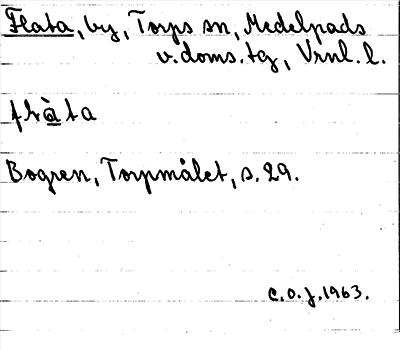 Flata, by, Torps sn, Medelpads
v. doms. tg, Vrnl. l.
Bogren, Torpmålet, s. 29.
C.O.J. 1963.